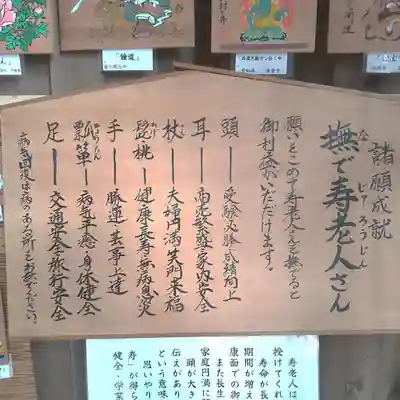 諸願成就
撫で寿老人さん
な
じゅろうじん
願いをこめて寿老人さんを撫でると
御利益がいただけます。
頭―受験必勝・成績向上
耳―商売繁盛・家内安全
杖―夫婦円満・笑門来福
髭・桃―健康長寿・無病息災
ひげ
手―勝運・芸事上達
瓢箪―病気平癒・身体健全
ひょうたん
足―交通安全・旅行安全
病気回復は病のある所をお撫でください。
寿老人は
授けてくれ
寿命が長
期間が増え
康面での御
また長生
家庭円満に
頭が大き
伝えがあり
という意味
思いやり
寿」が得ら
健全・学業
「鍾道」